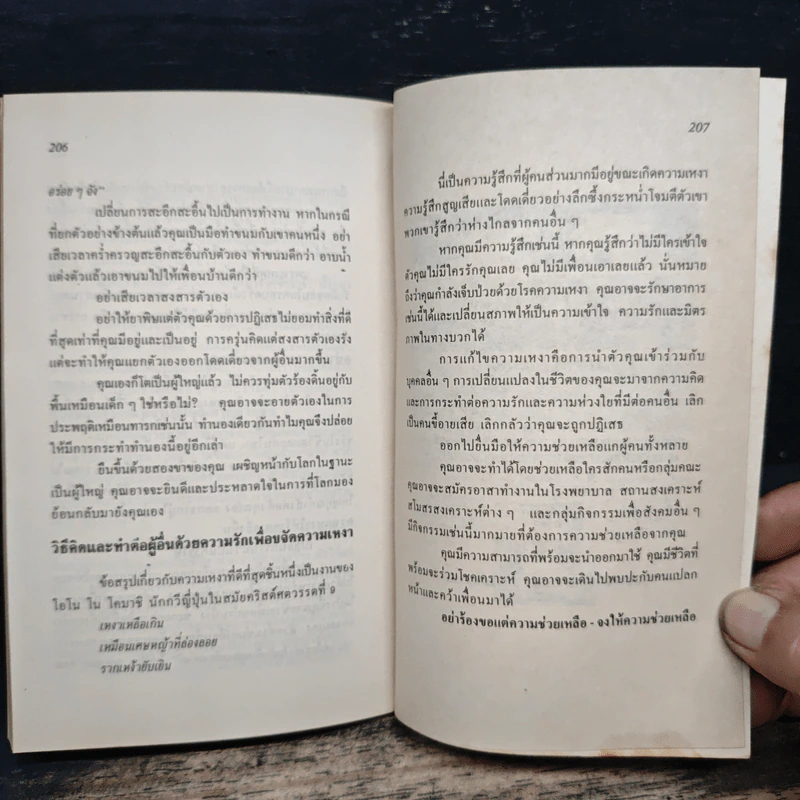 206
อร่อย ๆ จัง"
เปลี่ยนการสะอึกสะอื้นไปเป็นการทำงาน หากในกรณี
ที่ยกตัวอย่างข้างต้นแล้วคุณเป็นมือทำขนมกับเขาคนหนึ่ง อย่า
เสียเวลาคร่ำครวญสะอึกสะอื้นกับตัวเอง ทำขนมดีกว่า อาบน้ำ
แต่งตัวแล้วเอาขนมไปให้เพื่อนบ้านดีกว่า
อย่าเสียเวลาสงสารตัวเอง
อย่าให้ยาพิษแต่ตัวคุณด้วยการปฏิเสธไม่ยอมทำสิ่งที่ดี
ที่สุดเท่าที่คุณมีอยู่และเป็นอยู่ การครุ่นคิดแต่สงสารตัวเองรัง
แต่จะทำให้คุณแยกตัวเองออกโดดเดี่ยวจากผู้อื่นมากขึ้น
คุณเองก็โตเป็นผู้ใหญ่แล้ว ไม่ควรทุ่มตัวร้องดิ้นอยู่กับ
พื้นเหมือนเด็ก ๆ ใช่หรือไม่? คุณอาจจะอายตัวเองในการ
ประพฤติเหมือนทารกเช่นนั้น ทำนองเดียวกันทำไมคุณจึงปล่อย
ให้มีการกระทำทำนองนี้อยู่อีกเล่า
ยืนขึ้นด้วยสองขาของคุณ เผชิญหน้ากับโลกในฐานะ
เป็นผู้ใหญ่ คุณอาจจะยินดีและประหลาดใจในการที่โลกมอง
ย้อนกลับมายังคุณเอง
วิธีคิดและทำต่อผู้อื่นด้วยความรักเพื่อขจัดความเหงา
ข้อสรุปเกี่ยวกับความเหงาที่ดีที่สุดชิ้นหนึ่งเป็นงานของ
โอโน โน โคมาชิ นักกวีญี่ปุ่นในสมัยคริสต์ศตวรรตที่ 9
เหงาเหลือเกิน
เหมือนเศษหญ้าที่ล่องลอย
รากเหง้ายับเยิน
207
นี่เป็นความรู้สึกที่ผู้คนส่วนมากมีอยู่ขณะเกิดความเหงา
ความรู้สึกสูญเสียและโดดเดี่ยวอย่างลึกซึ้งกระหน่ำโจมตีตัวเขา
พวกเขารู้สึกว่าห่างไกลจากคนอื่น ๆ
หากคุณมีความรู้สึกเช่นนี้ หากคุณรู้สึกว่าไม่มีใครเข้าใจ
ตัวคุณไม่มีใครรักคุณเลย คุณไม่มีเพื่อนเอาเลยแล้ว นั่นหมาย
ถึงว่าคุณกำลังเจ็บป่วยด้วยโรคความเหงา คุณอาจจะรักษาอาการ
เช่นนี้ได้และเปลี่ยนสภาพให้เป็นความเข้าใจ ความรักและมิตร
ภาพในทางบวกได้
การแก้ไขความเหงาคือการนำตัวคุณเข้าร่วมกับ
บุคคลอื่น ๆ การเปลี่ยนแปลงในชีวิตของคุณจะมาจากความคิด
และการกระทำต่อความรักและความห่วงใยที่มีต่อคนอื่น เลิก
เป็นคนขี้อายเสีย เลิกกลัวว่าคุณจะถูกปฏิเสธ
ออกไปยื่นมือให้ความช่วยเหลือแกผู้คนทั้งหลาย
คุณอาจจะทำได้โดยช่วยเหลือใครสักคนหรือกลุ่มคณะ
คุณอาจจะสมัครอาสาทำงานในโรงพยาบาล สถานสงเคราะห์
สโมสรสงเคราะห์ต่าง ๆ และกลุ่มกิจกรรมเพื่อสังคมอื่น ๆ
มีกิจกรรมเช่นนี้มากมายที่ต้องการความช่วยเหลือจากคุณ
คุณมีความสามารถที่พร้อมจะนำออกมาใช้ คุณมีชีวิตที่
พร้อมจะร่วมโชคเคราะห์ คุณอาจจะเดินไปพบปะกับคนแปลก
หน้าและคว้าเพื่อนมาได้
อย่าร้องขอแต่ความช่วยเหลือ - จงให้ความช่วยเหลือ